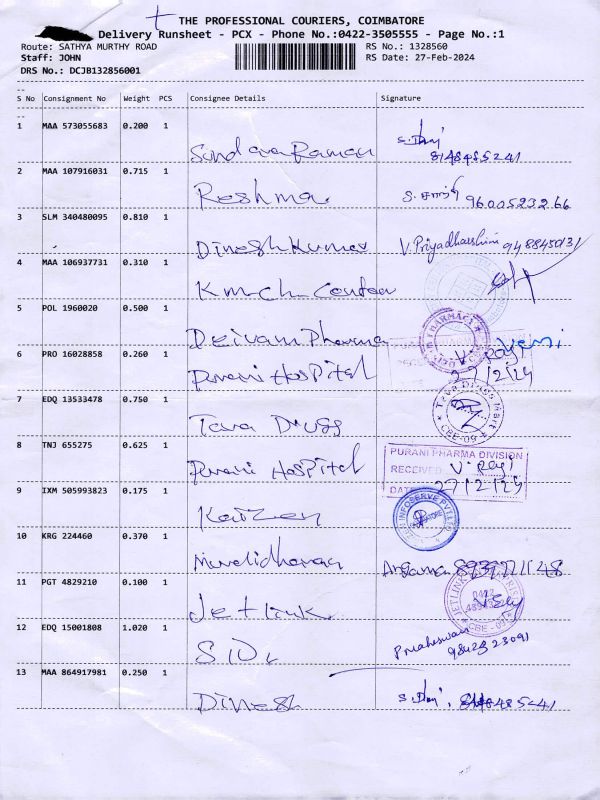 THE PROFESSIONAL COURIERS, COIMBATORE
Delivery Runsheet - PCX - Phone No.:0422-3505555 - Page No.:1
Route: SATHYA MURTHY ROAD
RS No.: 1328560
Staff: JOHN
RS Date: 27-Feb-2024
DRS No.: DCJB132856001
S No Consignment No Weight PCS Consignee Details Signature
1 MAA 573055683 0.200 1 Sundararaman 8148485241
2 MAA 107916031 0.715 1 Reshma 9600523266
3 SLM 340480095 0.810 1 Dinesh Kumar V. Priyadharshini 9488450131
4 MAA 106937731 0.310 1 Kmch Center
5 POL 1960020 0.500 1 Deivam Pharma
6 PRO 16028858 0.260 1 Purani Hospital V. Rayi 27/2/24
7 EDQ 13533478 0.750 1 Tava Drugs
CBE-09
8 TNJ 655275 0.625 1 Purani Hospital
PURANI PHARMA DIVISION
RECEIVED V. Rayi
DATE 27/2/24
9 IXM 505993823 0.175 1 Kaizen
10 KRG 224460 0.370 1 Muralidharan
11 PGT 4829210 0.100 1 Jetlink
JETLINK
CBE-09
12 EDQ 15001808 1.020 1 P. Maheswari
9842323091
13 MAA 864917981 0.250 1 Dinesh